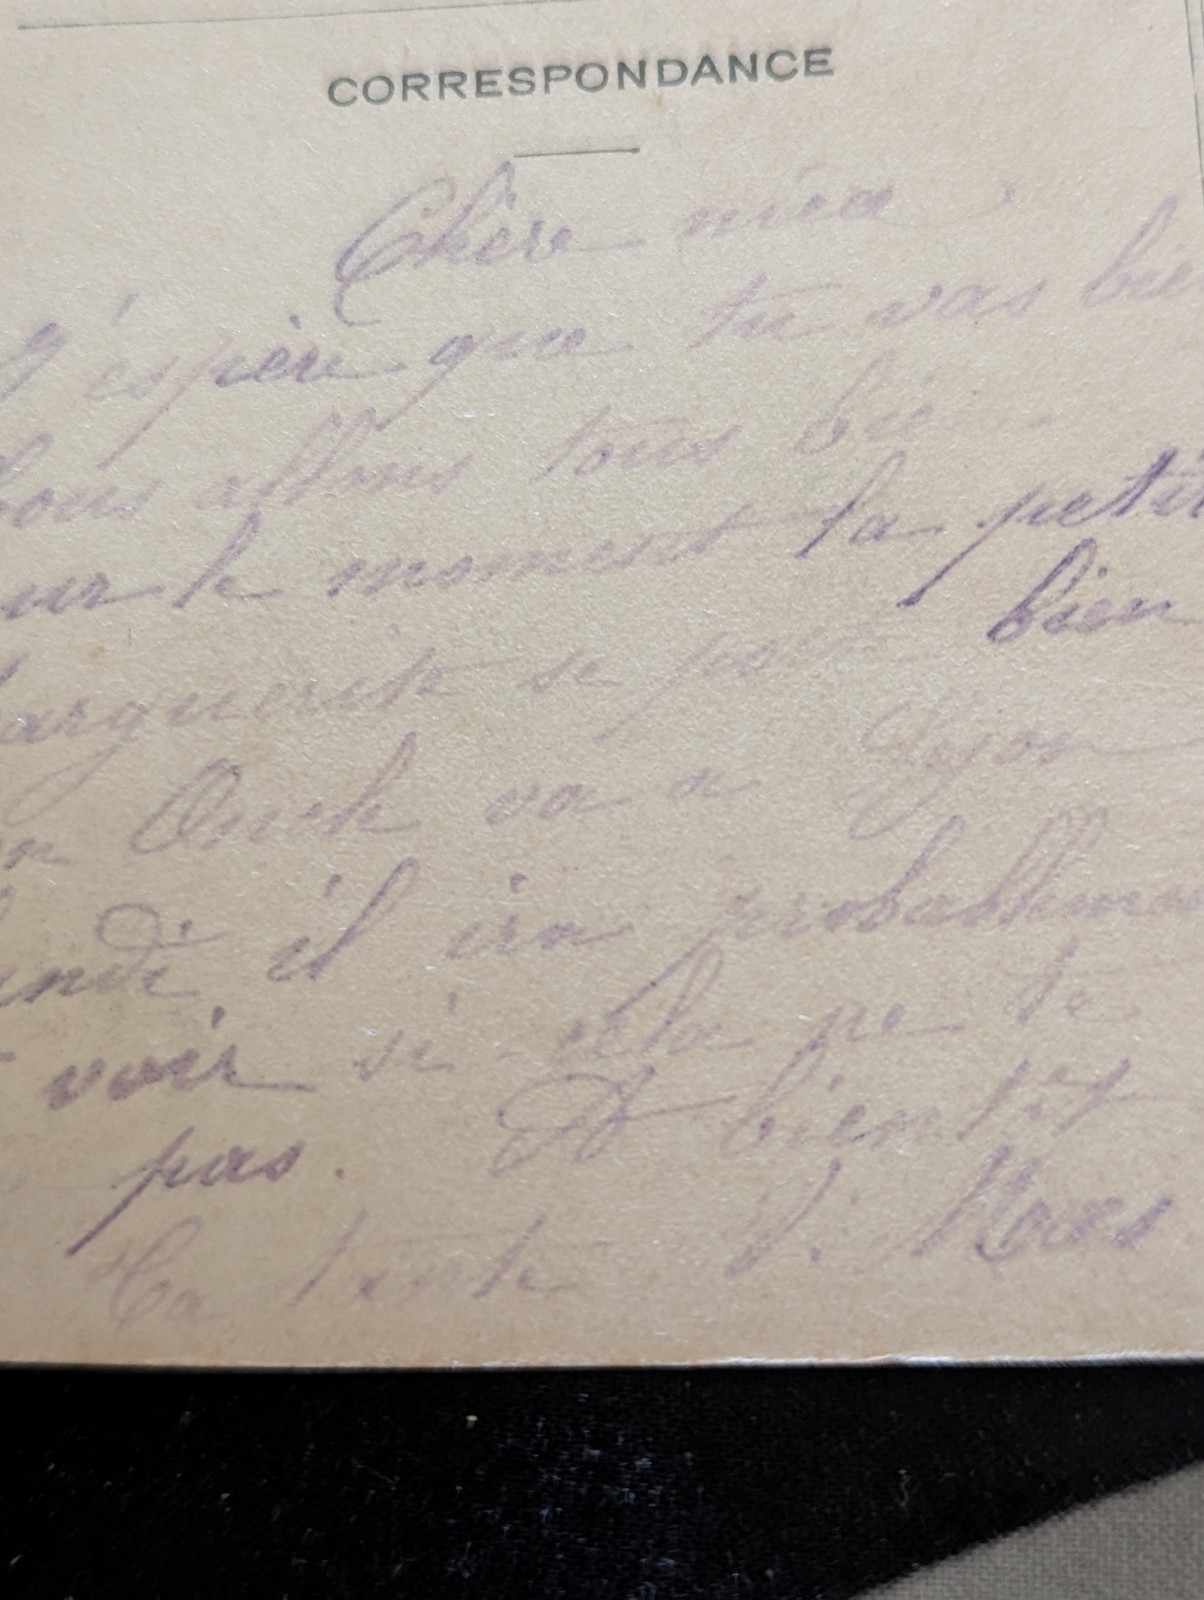 CORRESPONDANCE
Chère nièce
J'espère que tu vas bie
ous allons tous bie
ur le moment la petit
arguerite se bien
n Oncle va a Lyon
undi il ira probablleme
voir si cela ne te
pas. A bientôt
Ta tante J.